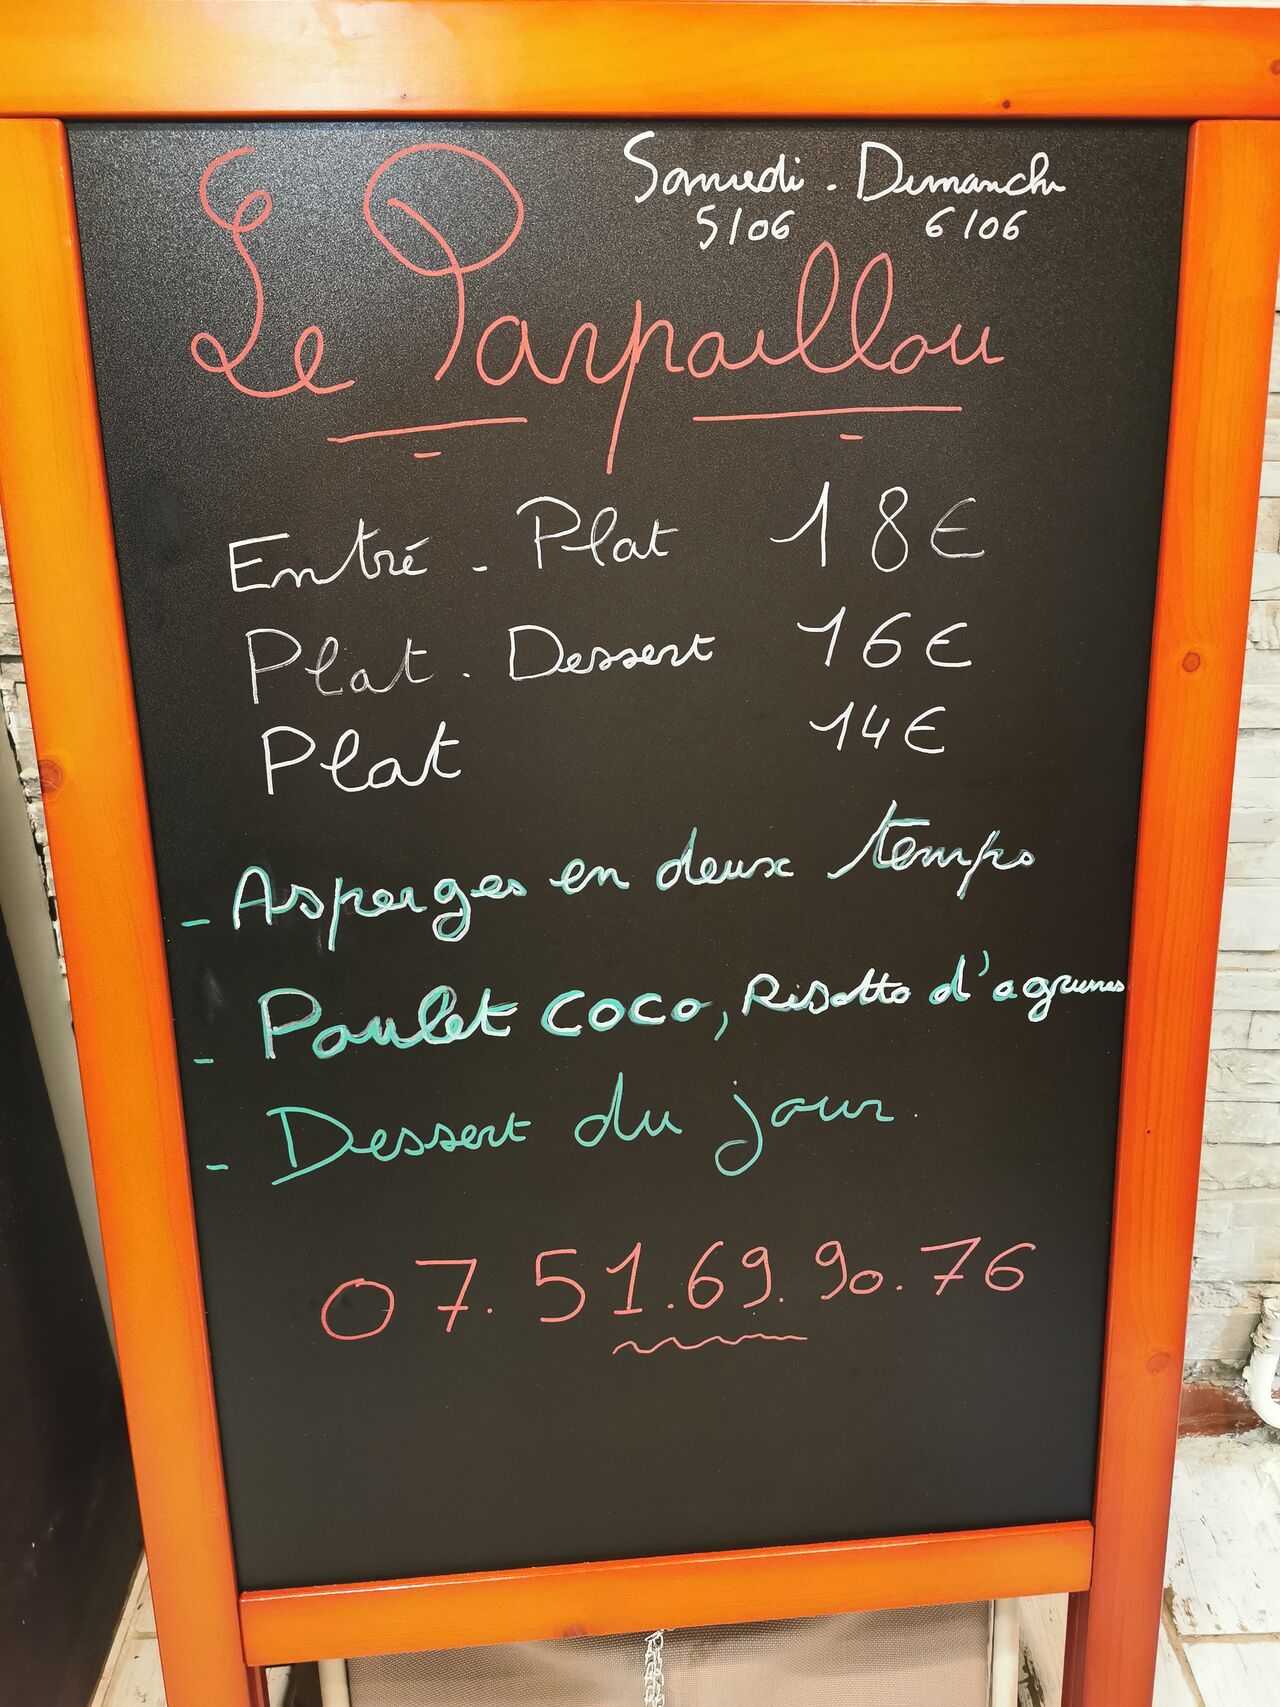 Samedi - Dimanche
5/06 6/06
Le Parpaillou
Entré - Plat 18€
Plat - Dessert 16€
Plat 14€
- Asperges en deux temps
- Poulet coco, Risotto d'agrumes
- Dessert du jour.
07.51.69.90.76